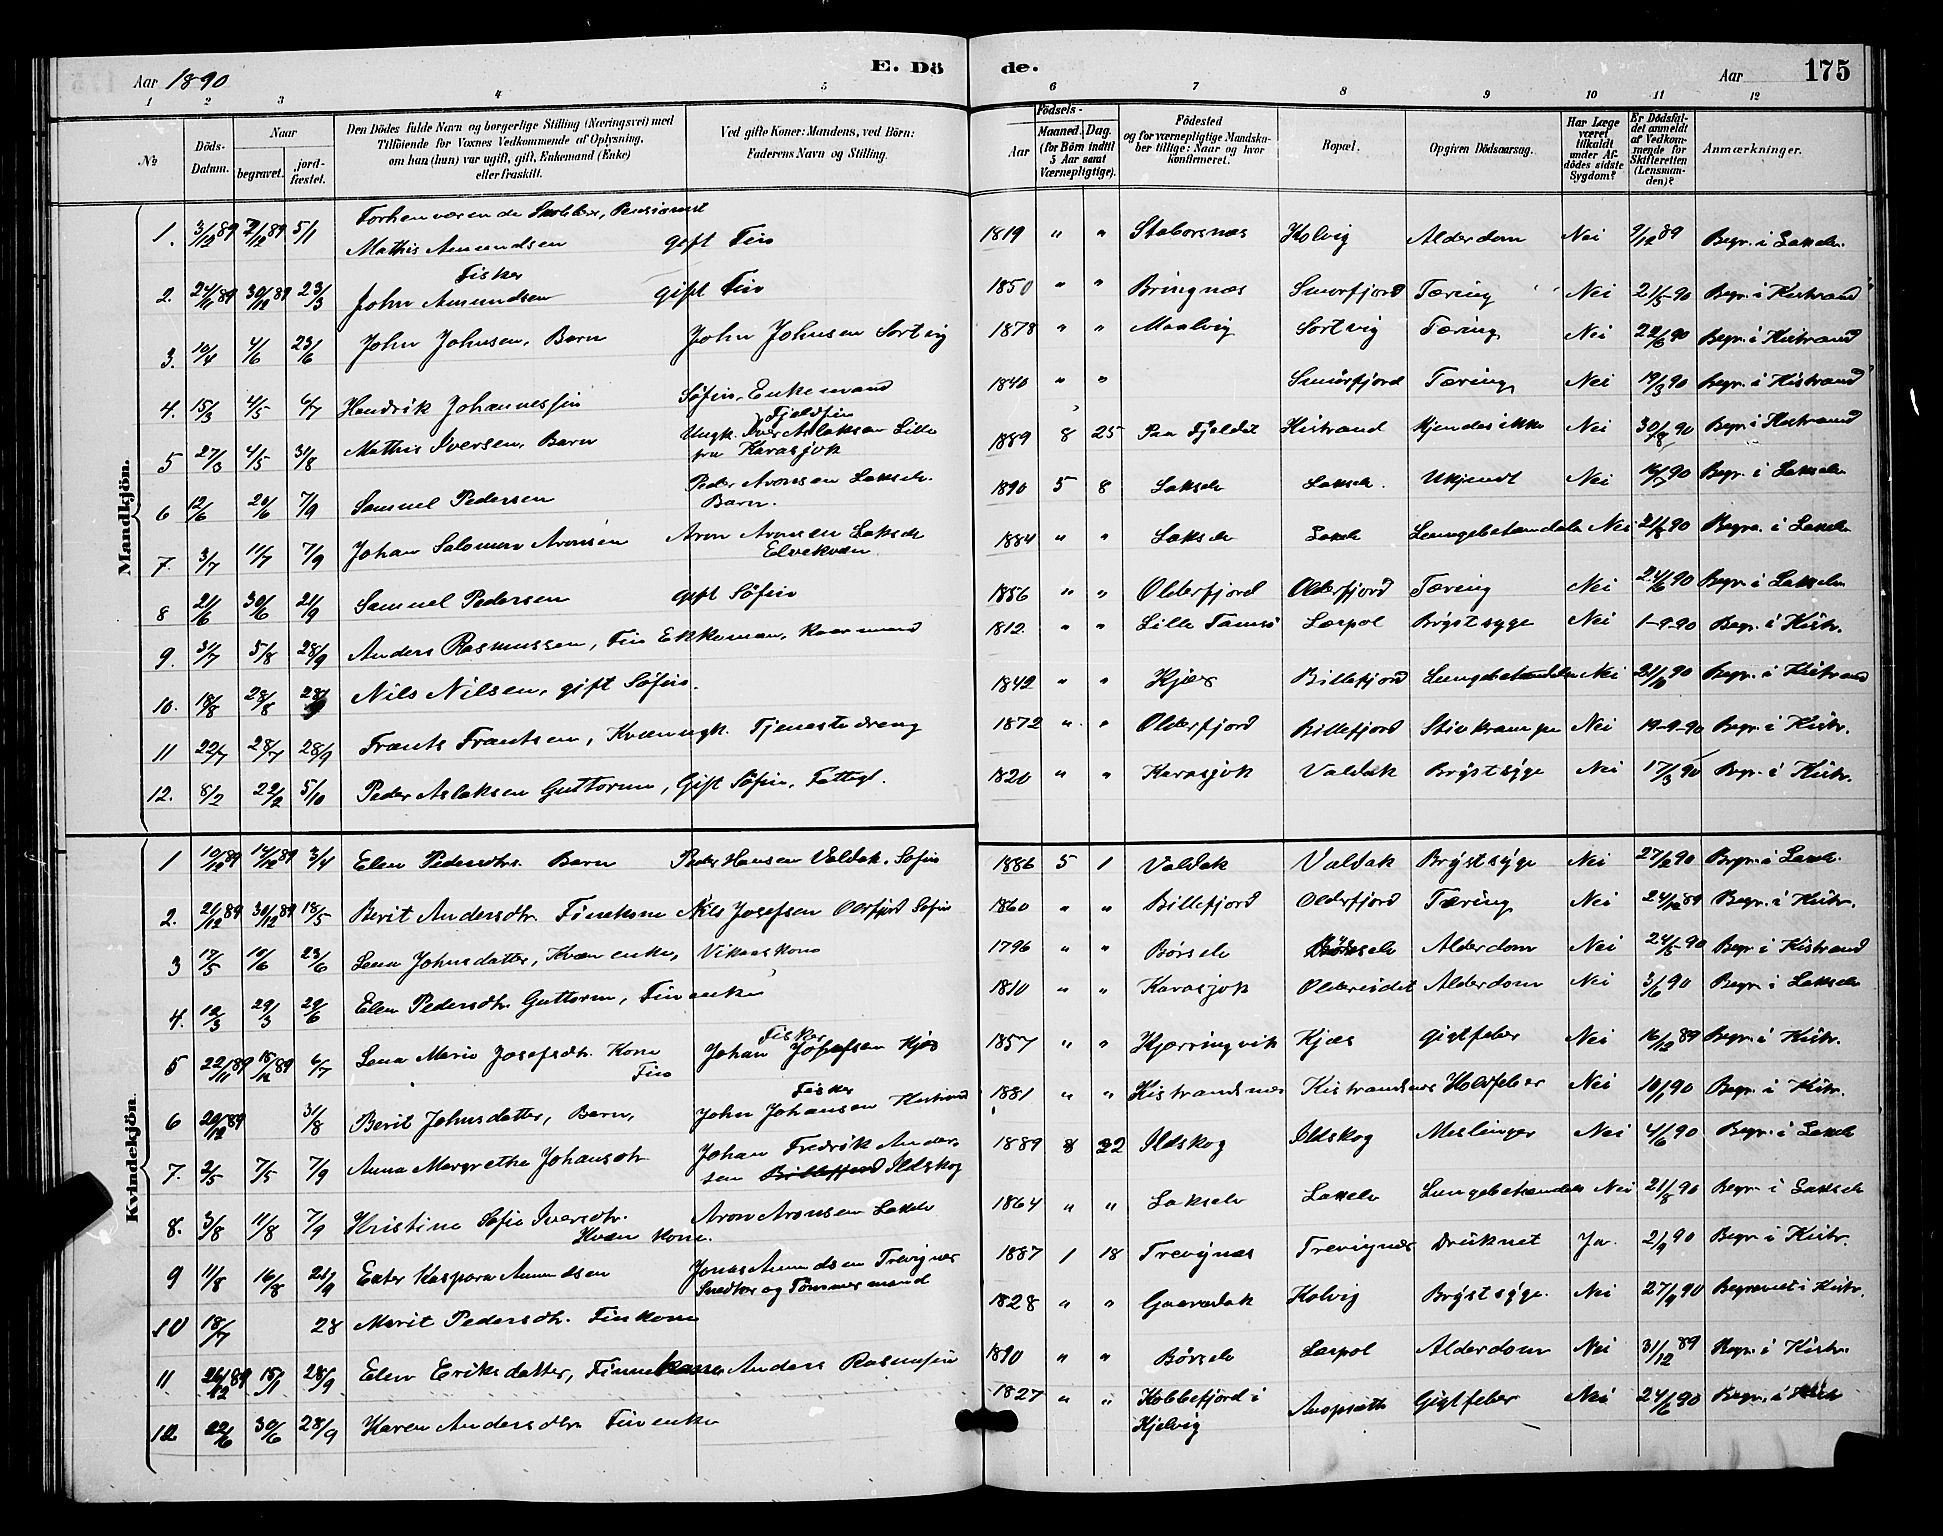 Aar 1890 E. Dö
de. Aar 175
1 2 3 4 5 6 7 8 9 10 11 12
№ Döds-Datum. Naar begravet. jordfæstet. Den Dödes fulde Navn og borgerlige Stilling (Næringsvei) med Tilföiende for Voxnes Vedkommende af Oplysning, om han (hun) var ugift, gift, Enkemand (Enke) eller fraskilt. Ved gifte Koner: Mandens, ved Börn: Faderens Navn og Stilling.
Födsels- Aar Maaned. Dag. (for Börn indtil 5 Aar samt Værnepligtige). Födested og for værnepligtige Mandskaber tillige: Naar og hvor konfirmeret. Bopæl. Opgiven Dödsaarsag. Har Læge været tilkaldt under Afdödes sidste Sygdom? Er Dödsfaldet anmeldt af Vedkommende for Skifteretten (Lensmanden)? Anmærkninger.
Mandkjön.
1. 3/12 89 7/12 89 5/1 Forhenværende Snedker, Pensionist
Mathis Amundsen gift Fin 1819 " " Staborsnæs Kolvig Alderdom Nei 9/12 89 Begr. i Lakselv.
2. 24/11 89 30/12 89 23/3 Fisker
John Amundsen gift Fin 1850 " " Bringnæs Smørfjord Tæring Nei 21/3 90 Begr. i Kistrand
3. 10/4 4/6 23/6 John Johnsen, Barn John Johnsen Sortvig 1878 " " Maalvig Sortvig Tæring Nei 22/6 90 Begr. i Kistrand
4. 15/3 4/5 6/7 Hendrik Johannessen Søfin, Enkemand 1840 " " Smørfjord Tæring Nei 19/3 90 Begr. i Kistrand
5 27/3 4/5 31/8 Mathis Iversen, Barn Ungk. Fjeldfin Iver Aslaksen Lille
fra Karasjok 1889 8 25 Paa Fjeldet Kistrand Kjendes ikke Nei 30/8 90 Begr. i Kistrand
6 12/6 20/6 7/9 Samuel Pedersen Peder Aronsen Lakselv.
Barn. 1890 5 8 Lakselv Lakselv. Ukjendt Nei 16/7 90 Begr. i Lakselv
7. 3/7 11/7 7/9 Johan Salomon Aronsen Aron Aronsen Lakselv
Elvekvæn 1884 " " Lakselv Lakselv Lungebetændelse Nei 21/8 90 Begr. i Lakselv
8 21/6 30/6 21/9 Samuel Pedersen gift Søfin 1856 " " Olderfjord Olderfjord Tæring Nei 24/6 90 Begr. i Lakselv
9. 31/7 5/8 28/9 Anders Rasmussen, Fin Enkeman, 1812. " " Lille Tamsø Laspol Brystsyge Nei 1-9-90 Begr. i Kistr.
10. 18/8 28/8 28/9 Nils Nilsen, gift Søfin. 1842 " " Kjæs Billefjord Lungebetændelse Nei 90 Begr. i Kistrand
11 22/7 28/7 28/9 Frants Frantsen, Kvæn ungk. Tjenestedreng 1872 " " Olderfjord Billefjord Stivkrampe Nei 19-9-90 Begr. i Kistr.
12. 8/2 22/2 5/10 Peder Aslaksen Guttorm, Gift Søfin, Fattigl. 1820 " " Karasjok Valdak Brystsyge Nei 17/3 90 Begr. i Kistr.
Kvindekjön.
1 10/12 89 14/12 89 3/4 Elen Pedersdtr. Barn Peder Hansen Valdak, Søfin 1886 5 1 Valdak Valdak Brystsyge Nei 90 Begr. i Lakselv.
2. 21/12 89 30/12 89 18/5 Berit Andersdtr. Finekone Nils Josefsen Olderfjord Søfin 1860 " " Billefjord Olderfjord Tæring Nei 24/12 89 Begr. i Kistr.
3 17/5 10/6 23/6 Lena Johnsdatter, Kvæn enke, 1796 " " Børselv Børselv Alderdom Nei 24/5 90 Begr. i Kistrand
4. 12/3 29/3 29/6 Elen Pedersdtr Guttorm, Fin enke 1810 " " Karasjok Oldereidet Alderdom Nei 3/6 90 Begr. i Lakselv
5 22/11 89 15/12 89 6/7 Lena Marie Josefsdtr. Kone
Fin Fisker
Johan Josefsen Kjæs 1857 " " Kjærringvik Kjæs Gigtfeber Nei 16/12 89 Begr. i Kistr.
6 20/12 89 31/8 Berit Johnsdatter, Barn, Fisker
John Johansen Kistrand 1881 " " Kistrandsnæs Kistrandsnæs Koldfeber Nei 10/1 90 Begr. i Kistr.
7. 2/5 7/5 7/9 Anna Margrethe Johansdtr Johan Fredrik Ander-
sen Billefjord Ildskog 1889 8 22 Ildskog Ildskog Meslinger Nei 4/6 90 Begr. i Lakselv
8. 3/8 11/8 7/9 Kristine Sofie Iversdtr.
Kvæn Kone. Aron Aronsen Lakselv 1864 " " Lakselv Lakselv Lungebetændelse Nei 21/8 90 Begr. i Lakselv
9 11/8 16/8 21/9 Ester Kaspara Amundsen Jonas Amundsen Trevignæs
Snedker og Tømmermand 1887 1 18 Trevignæs Trevignæs Druknet Ja. 2/9 90 Begr. i Kistr.
10 18/7 28 Marit Pedersdtr. Finkone 1828 " " Gaaradak Kolvig Brystsyge. Nei 27/9 90 Begravet i Kistr.
11 26/12 89 15/1 28/9 Elen Eriksdatter, Finne Kone Anders Rasmussen 1890 " " Børselv Laspol Alderdom Nei 31/12 89 Begr. i Kistr.
12. 22/6 30/6 28/9 Karen Andersdtr Fin enke 1827 " " Kobbefjord i
Kjelvig Gigtfeber Nei 24/6 90 Begr. i Kistr